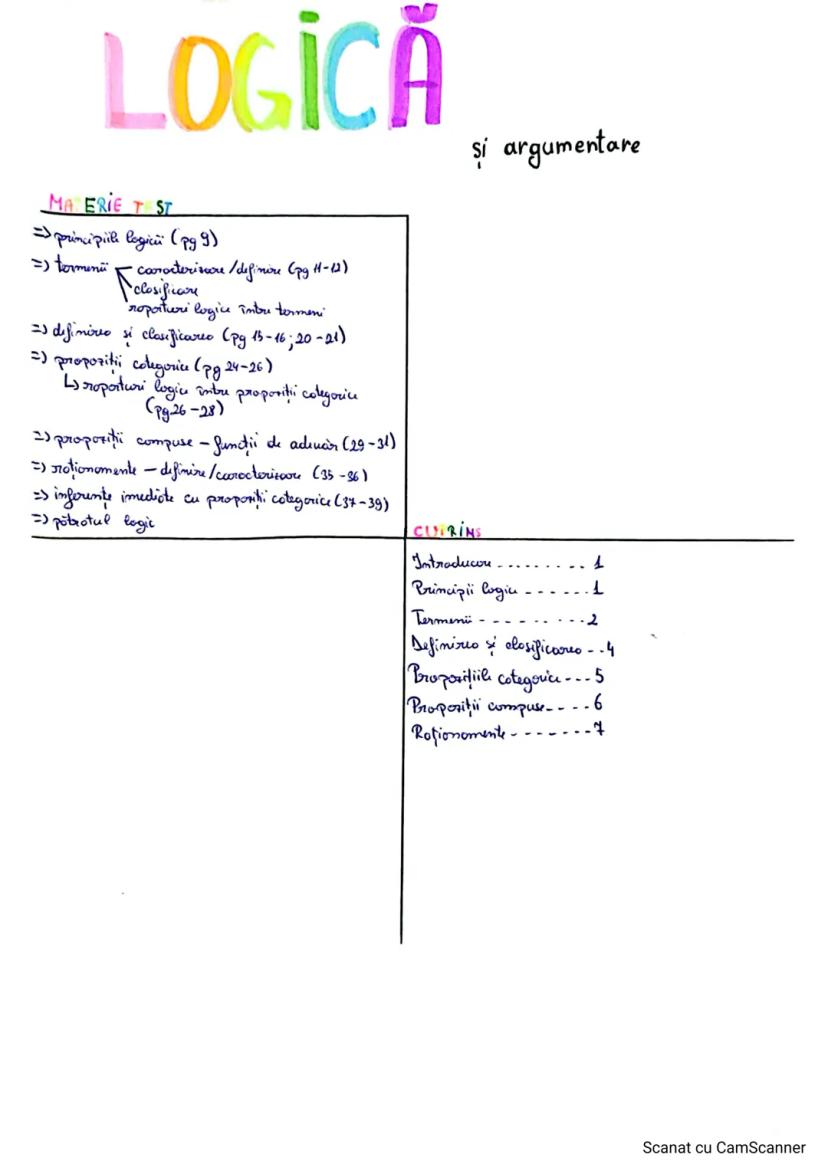 LOGICĂ
și argumentare
MATERIE TEST
=> principiile logicii (pg 9)
=> termenii caracterizare/definire (pg 11-12)
clasificare
raporturi logice între termeni
=> definirea și clasificarea (pg 15-16; 20-21)
=> propoziții categorice (pg 24-26)
↳ raporturi logice între propoziții categorice
(pg.26-28)
=> propoziții compuse - funcții de adevăr (29-31)
=> raționamente - definire/caracterizare (35-36)
=> inferențe imediate cu propoziții categorice (37-39)
=> pătratul logic
CUPRINS
Introducere ......... 1
Principii logice ------- 1
Termenii ---------- 2
Definirea și clasificarea -- 4
Propozițiile categorice --- 5
Propoziții compuse ----- 6
Raționamente -------- 7
Scanat cu CamScanner